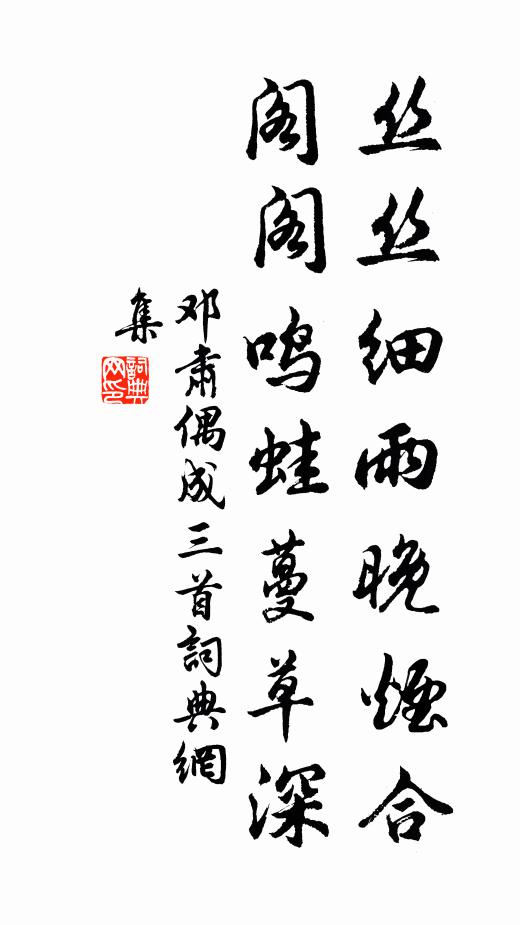 丝丝细雨晚烟合
阁阁鸣蛙蔓草深
邓肃偶成三首詞典網
集
詞典
网印